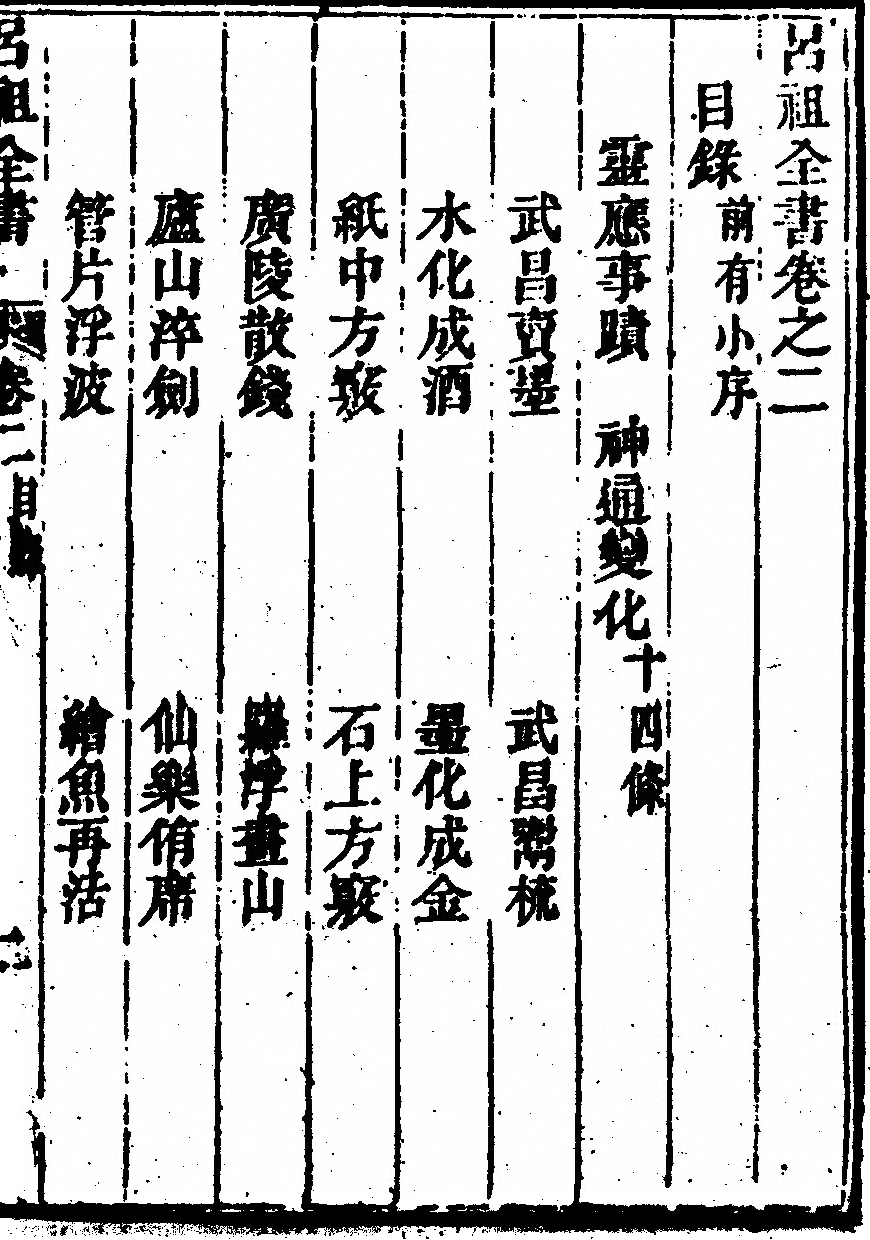 呂祖全書卷之二
目錄 前有小序
靈應事蹟 神通變化十四條
武昌賣墨 武昌鬻梳
水化成酒 墨化成金
紙中方竅 石上方竅
廣陵散錢 羅浮畫山
廬山淬劍 仙樂侑席
管片浮波 繪魚再活
呂祖全書 卷二目錄